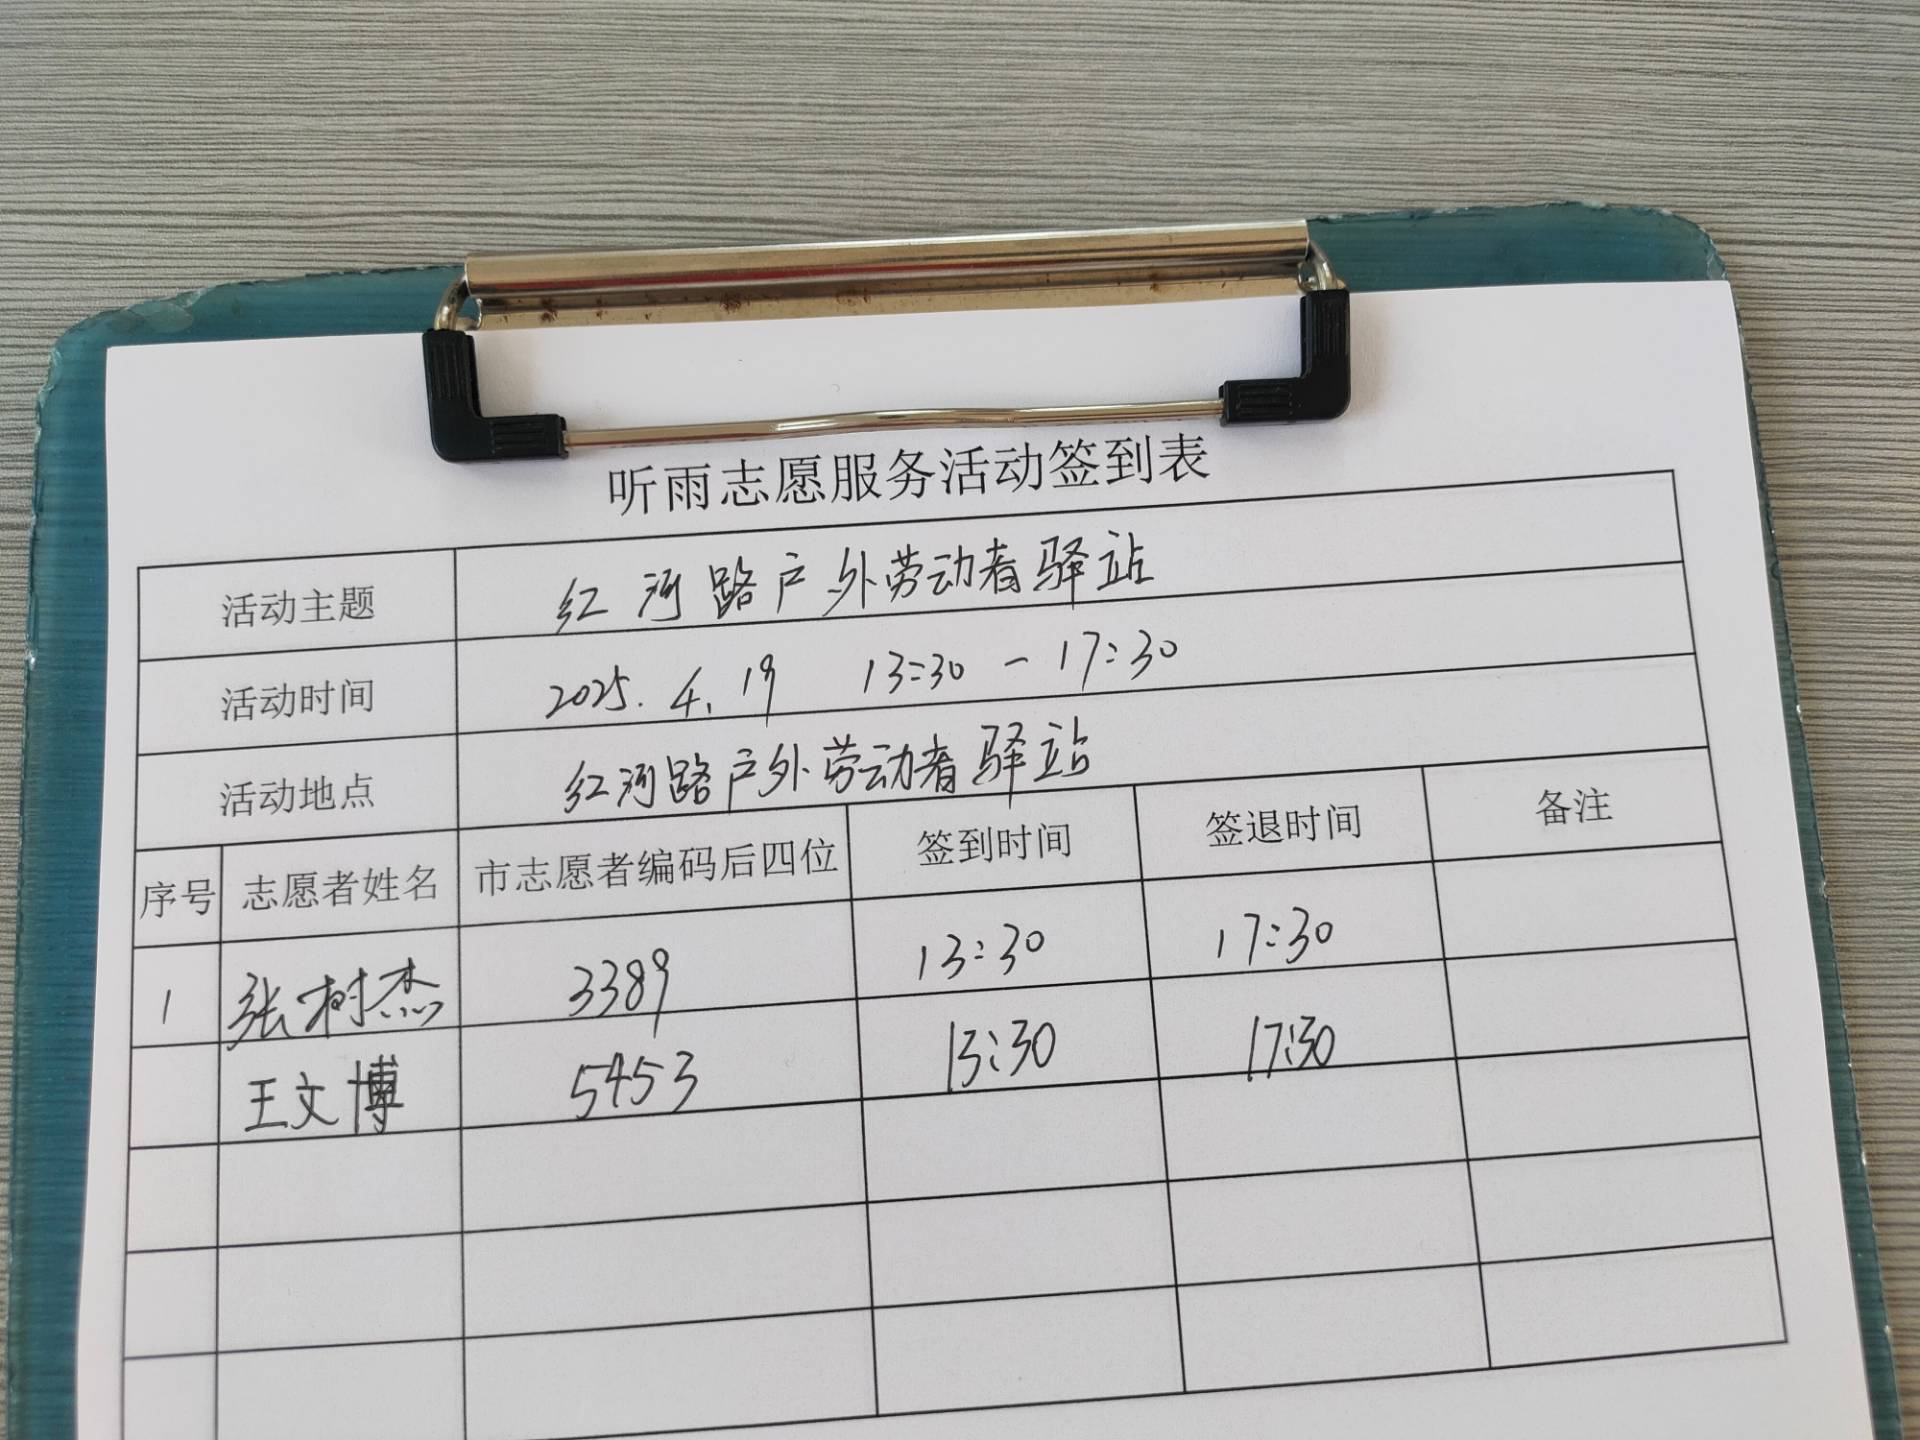 听雨志愿服务活动签到表
活动主题 红河路户外劳动者驿站
活动时间 2025.4.19 13:30-17:30
活动地点 红河路户外劳动者驿站
序号 志愿者姓名 市志愿者编码后四位 签到时间 签退时间 备注
1 张树杰 3389 13:30 17:30
王文博 5453 13:30 17:30